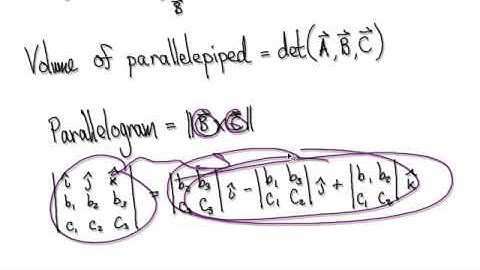 B
Volume of parallelepiped = det(A⃗, B⃗, C⃗)
Parallelogram = ||B⃗ × C⃗||
|î ĵ k̂; b₁ b₂ b₃; c₁ c₂ c₃| = |b₂ b₃; c₂ c₃| î - |b₁ b₃; c₁ c₂| ĵ + |b₁ b₂; c₁ c₂| k̂